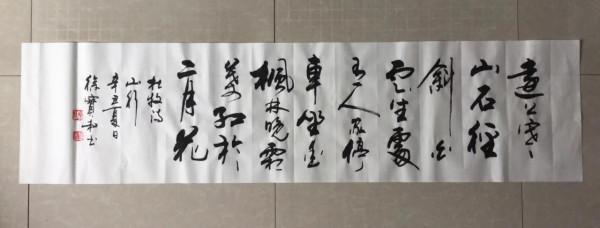 遠上寒
山石徑
斜白
雲生處
有人家停
車坐愛
楓林晚霜
葉紅於
二月花
杜牧诗
山行
辛丑夏日
徐寶和书